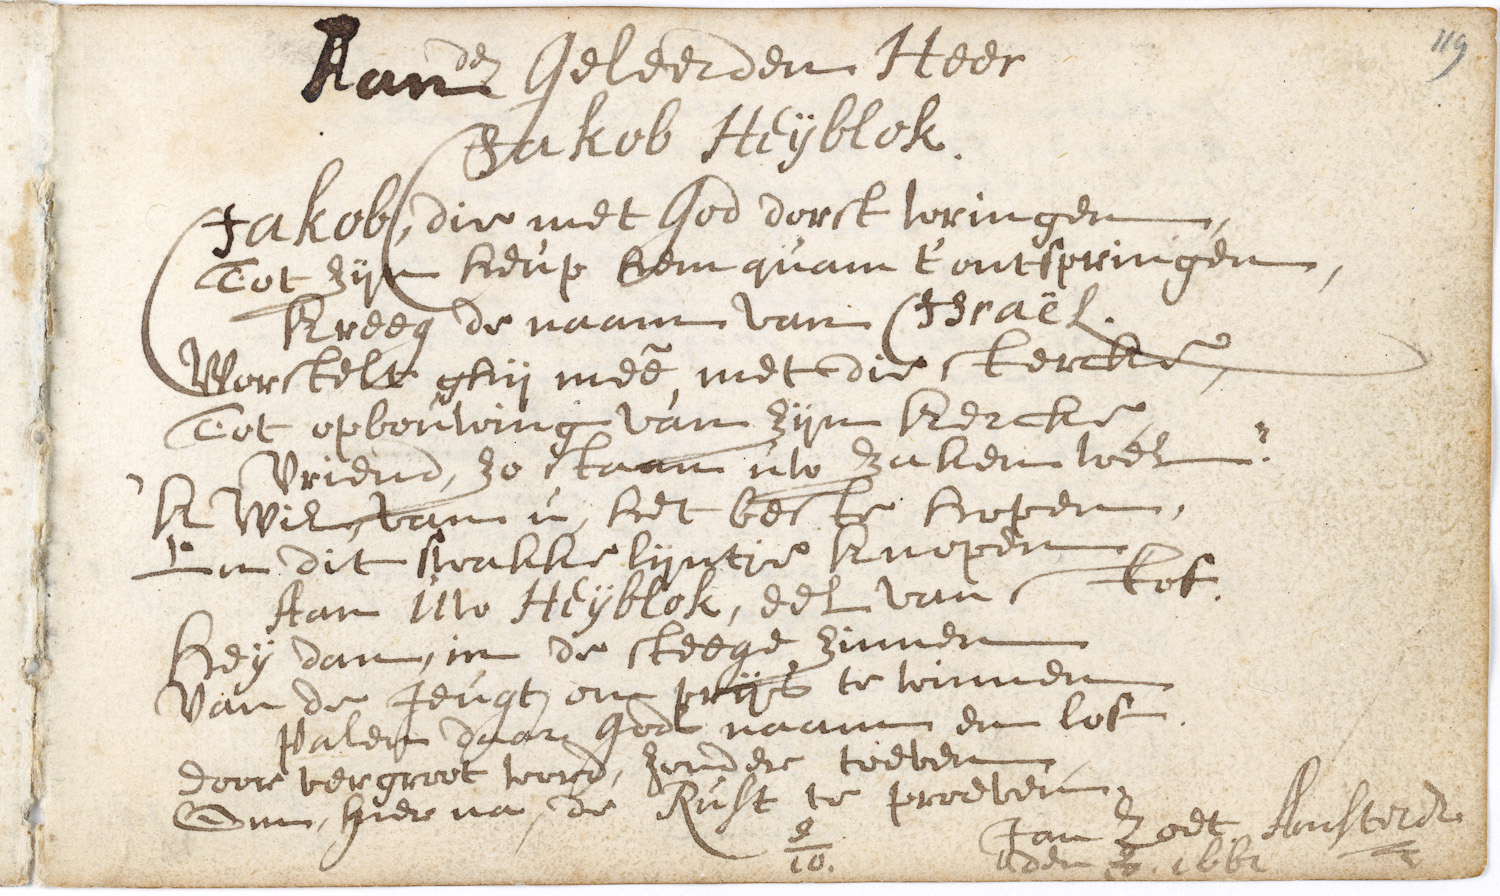 119
Aan den Geleerden Heer
Jakob Heÿblok.
Jakob, die met God dorst wringen,
Tot zijn heup hem quam t'ontspringen,
Kreeg de naam van Israël.
Worstelt ghij meê, met die stercke,
Tot opbouwing van zijn Kercke,
Vriend, zo staan uw zaken wel.
'K Wil, van u, het beste hopen,
En dit swakke lijntje knopen
Aan Uw Heÿblok, eel van stof.
Heÿ dan, in de steege zinnen
Van de Jeugt, om prijs te winnen
Palen daar Gods naam en lof
door vergroot word, zonder toeven
Om, hier na, de Rust te proeven.
Jan Zoet. Amsterd.
9/10. 1661